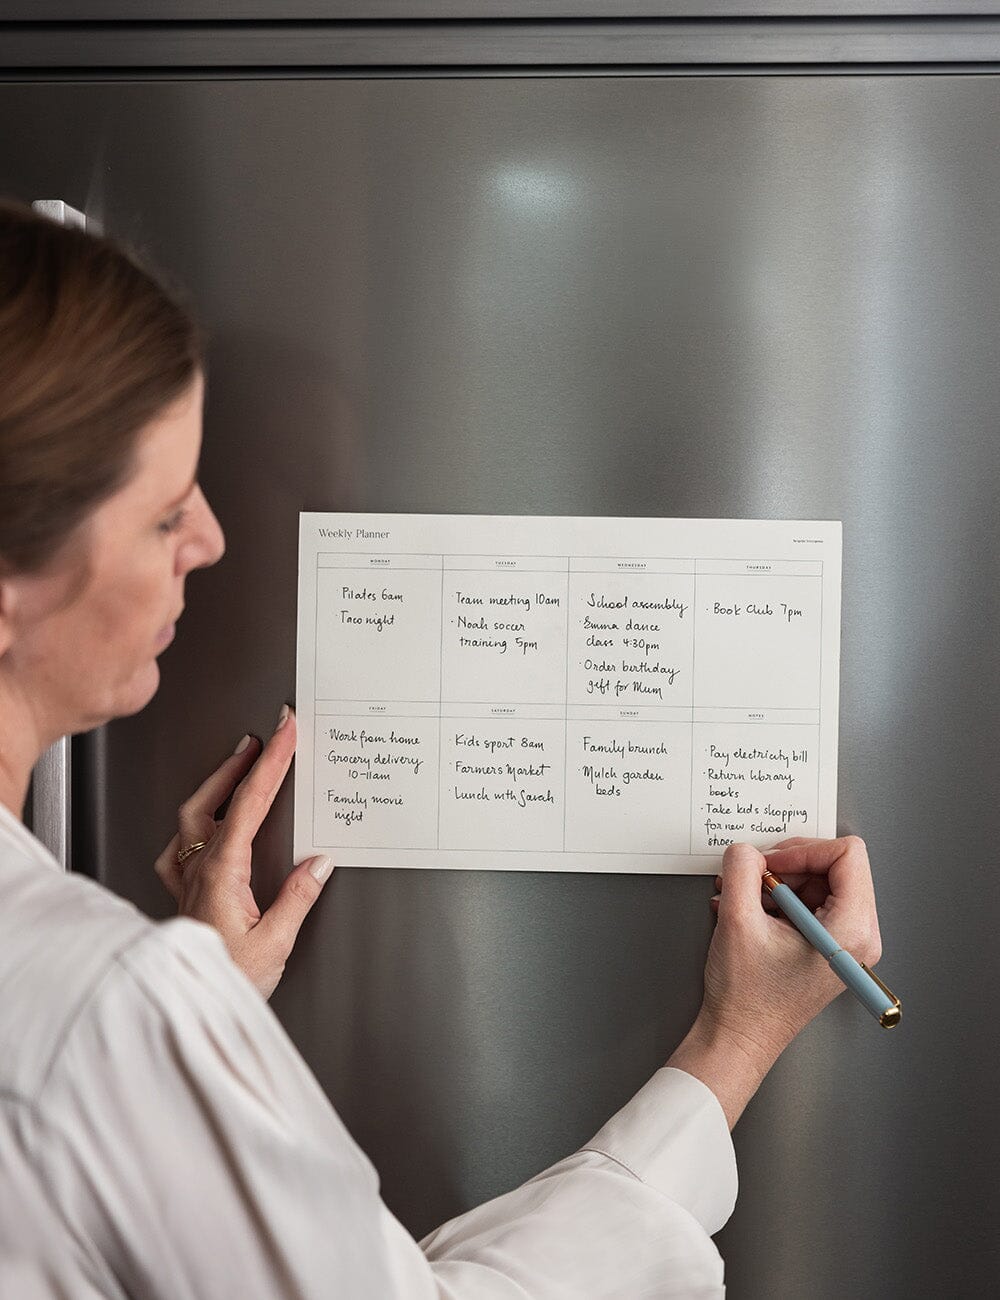 Weekly Planner
MONDAY
· Pilates 6am
· Taco night
TUESDAY
· Team meeting 10am
· Noah soccer
training 5pm
WEDNESDAY
· School assembly
· Emma dance
class 4:30pm
· Order birthday
gift for Mum
THURSDAY
· Book Club 7pm
FRIDAY
· Work from home
· Grocery delivery
10-11am
· Family movie
night
SATURDAY
· Kids sport 8am
· Farmers Market
· Lunch with Sarah
SUNDAY
· Family brunch
· Mulch garden
beds
NOTES
· Pay electricity bill
· Return library
books
· Take kids shopping
for new school
shoes